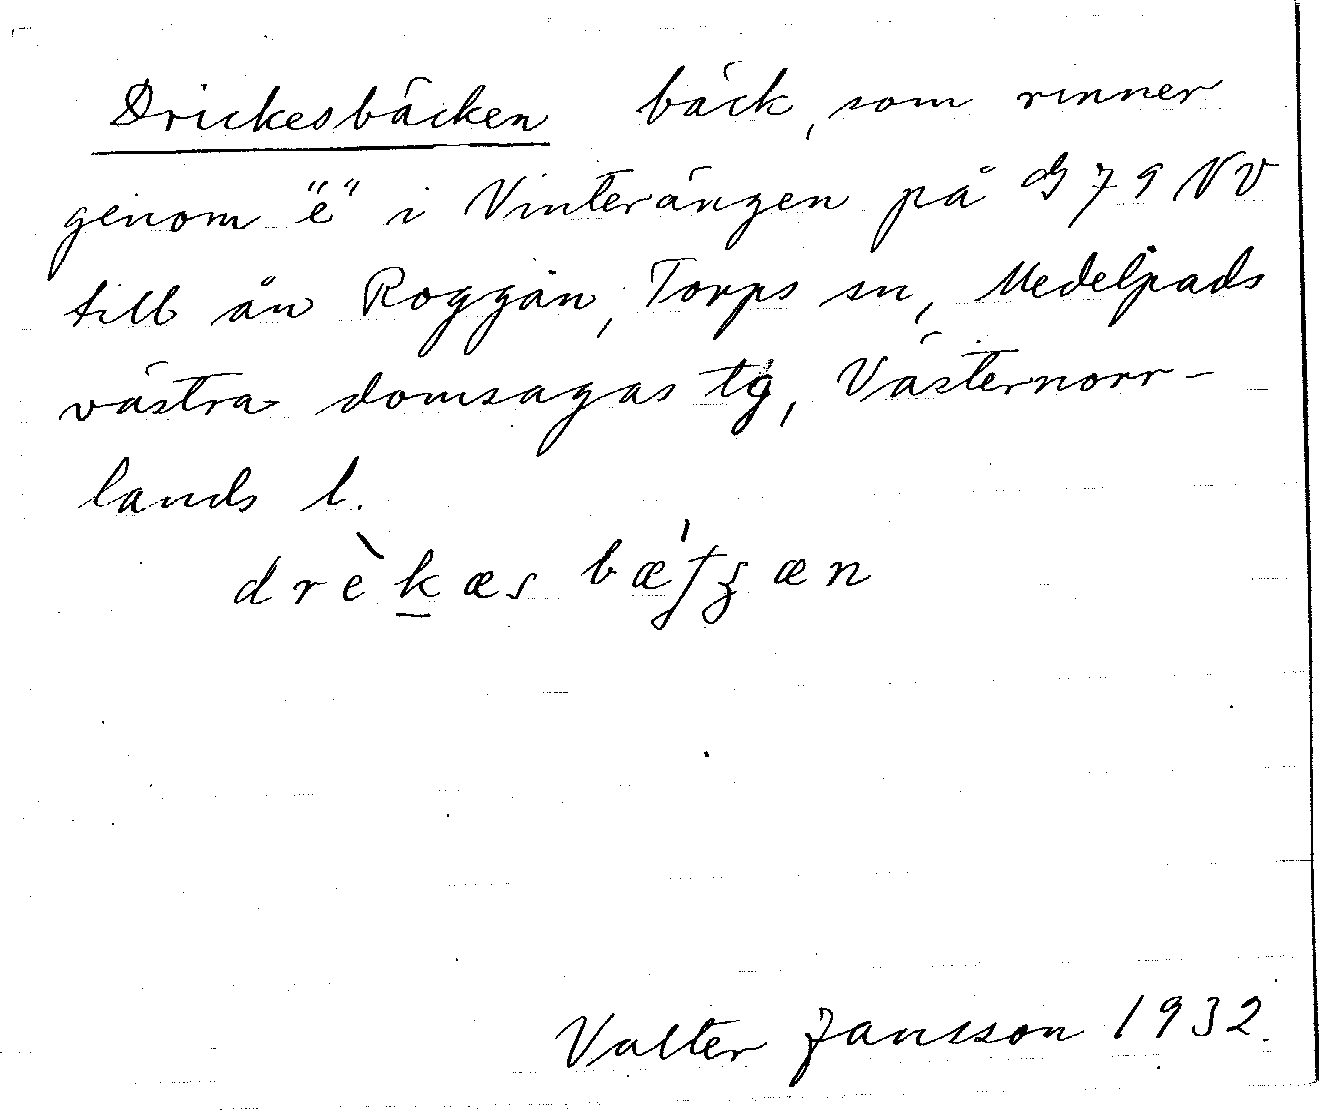 Drickesbäcken bäck, som rinner
genom "e" i Vinterängen på G 79 NV
till ån Roggån, Torps sn, Medelpads
västra domsagas tg, Västernorr-
lands l.
drèkæs
Valter Jansson 1932.